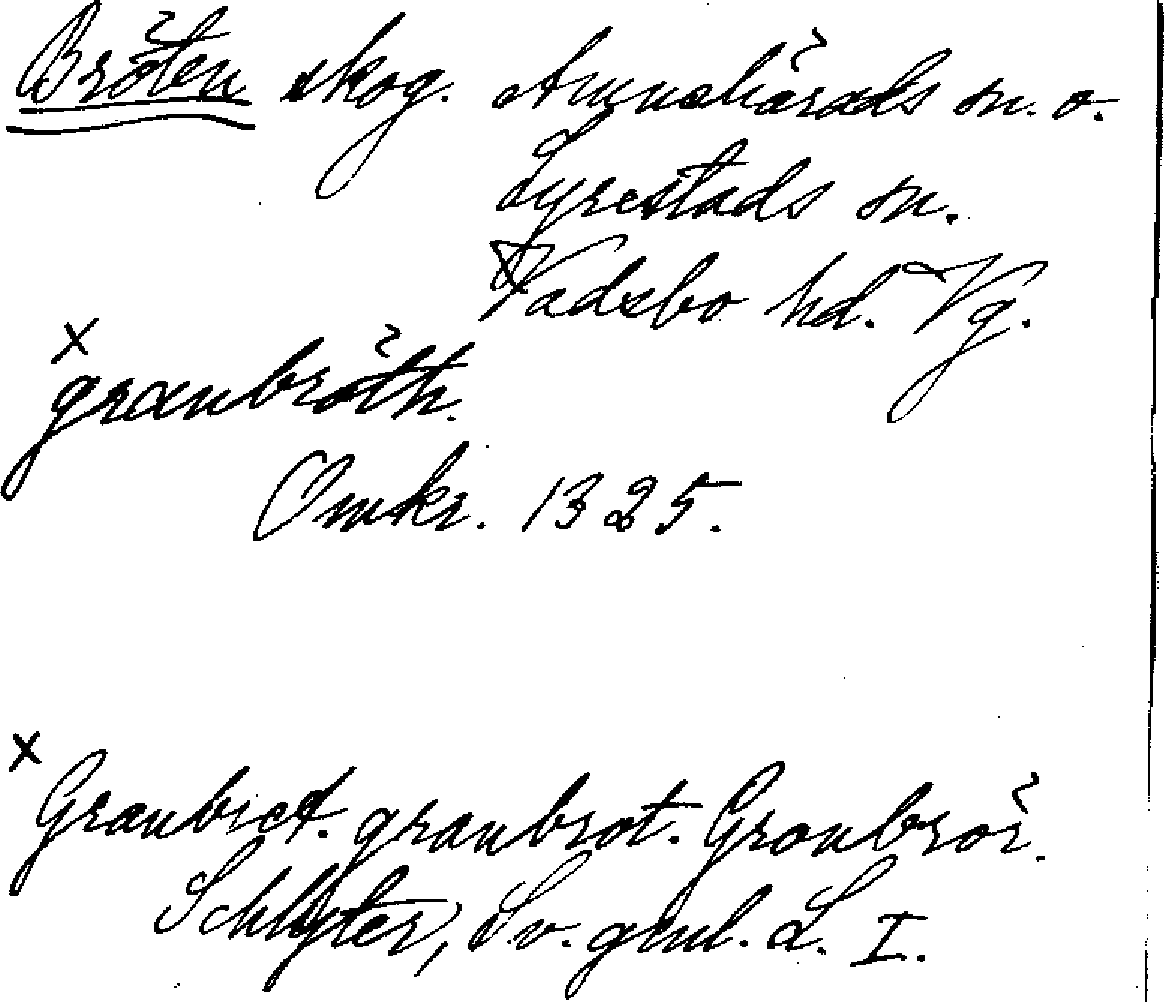 Bröten skog. Amnehärads sn. o.
Lyrestads sn.
Vadsbo hd. Vg.
x
granbröth.
Omkr. 1325.
x
Granbrot. granbrot. Gronbrör.
Schlyter, Sv. gml. L. I.